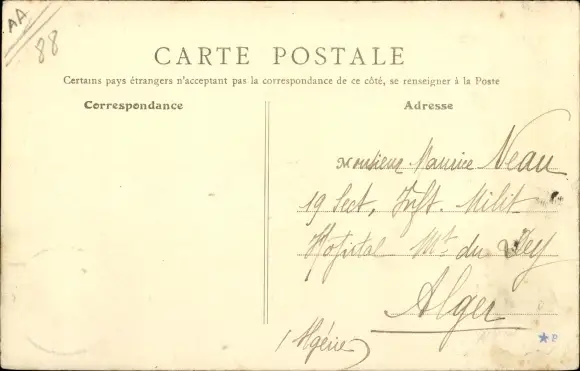 AA
88
CARTE POSTALE
Certains pays étrangers n'acceptant pas la correspondance de ce côté, se renseigner à la Poste
Correspondance
Adresse
Monsieur Maurice Neau
19 Sect, Inft. Milit
Hopital Mt. du Dey
Alger
Algérie
B